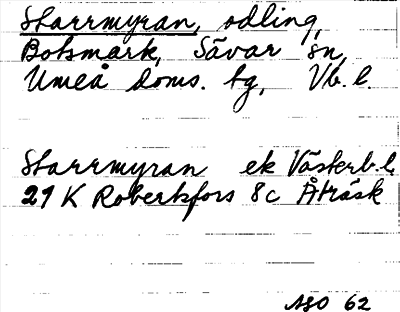 Starrmyran, odling,
Botsmark, Sävar sn,
Umeå doms. tg, Vb. l.
Starrmyran ek Västerb. l.
21 K Robertsfors 8c Åträsk
ASO 62